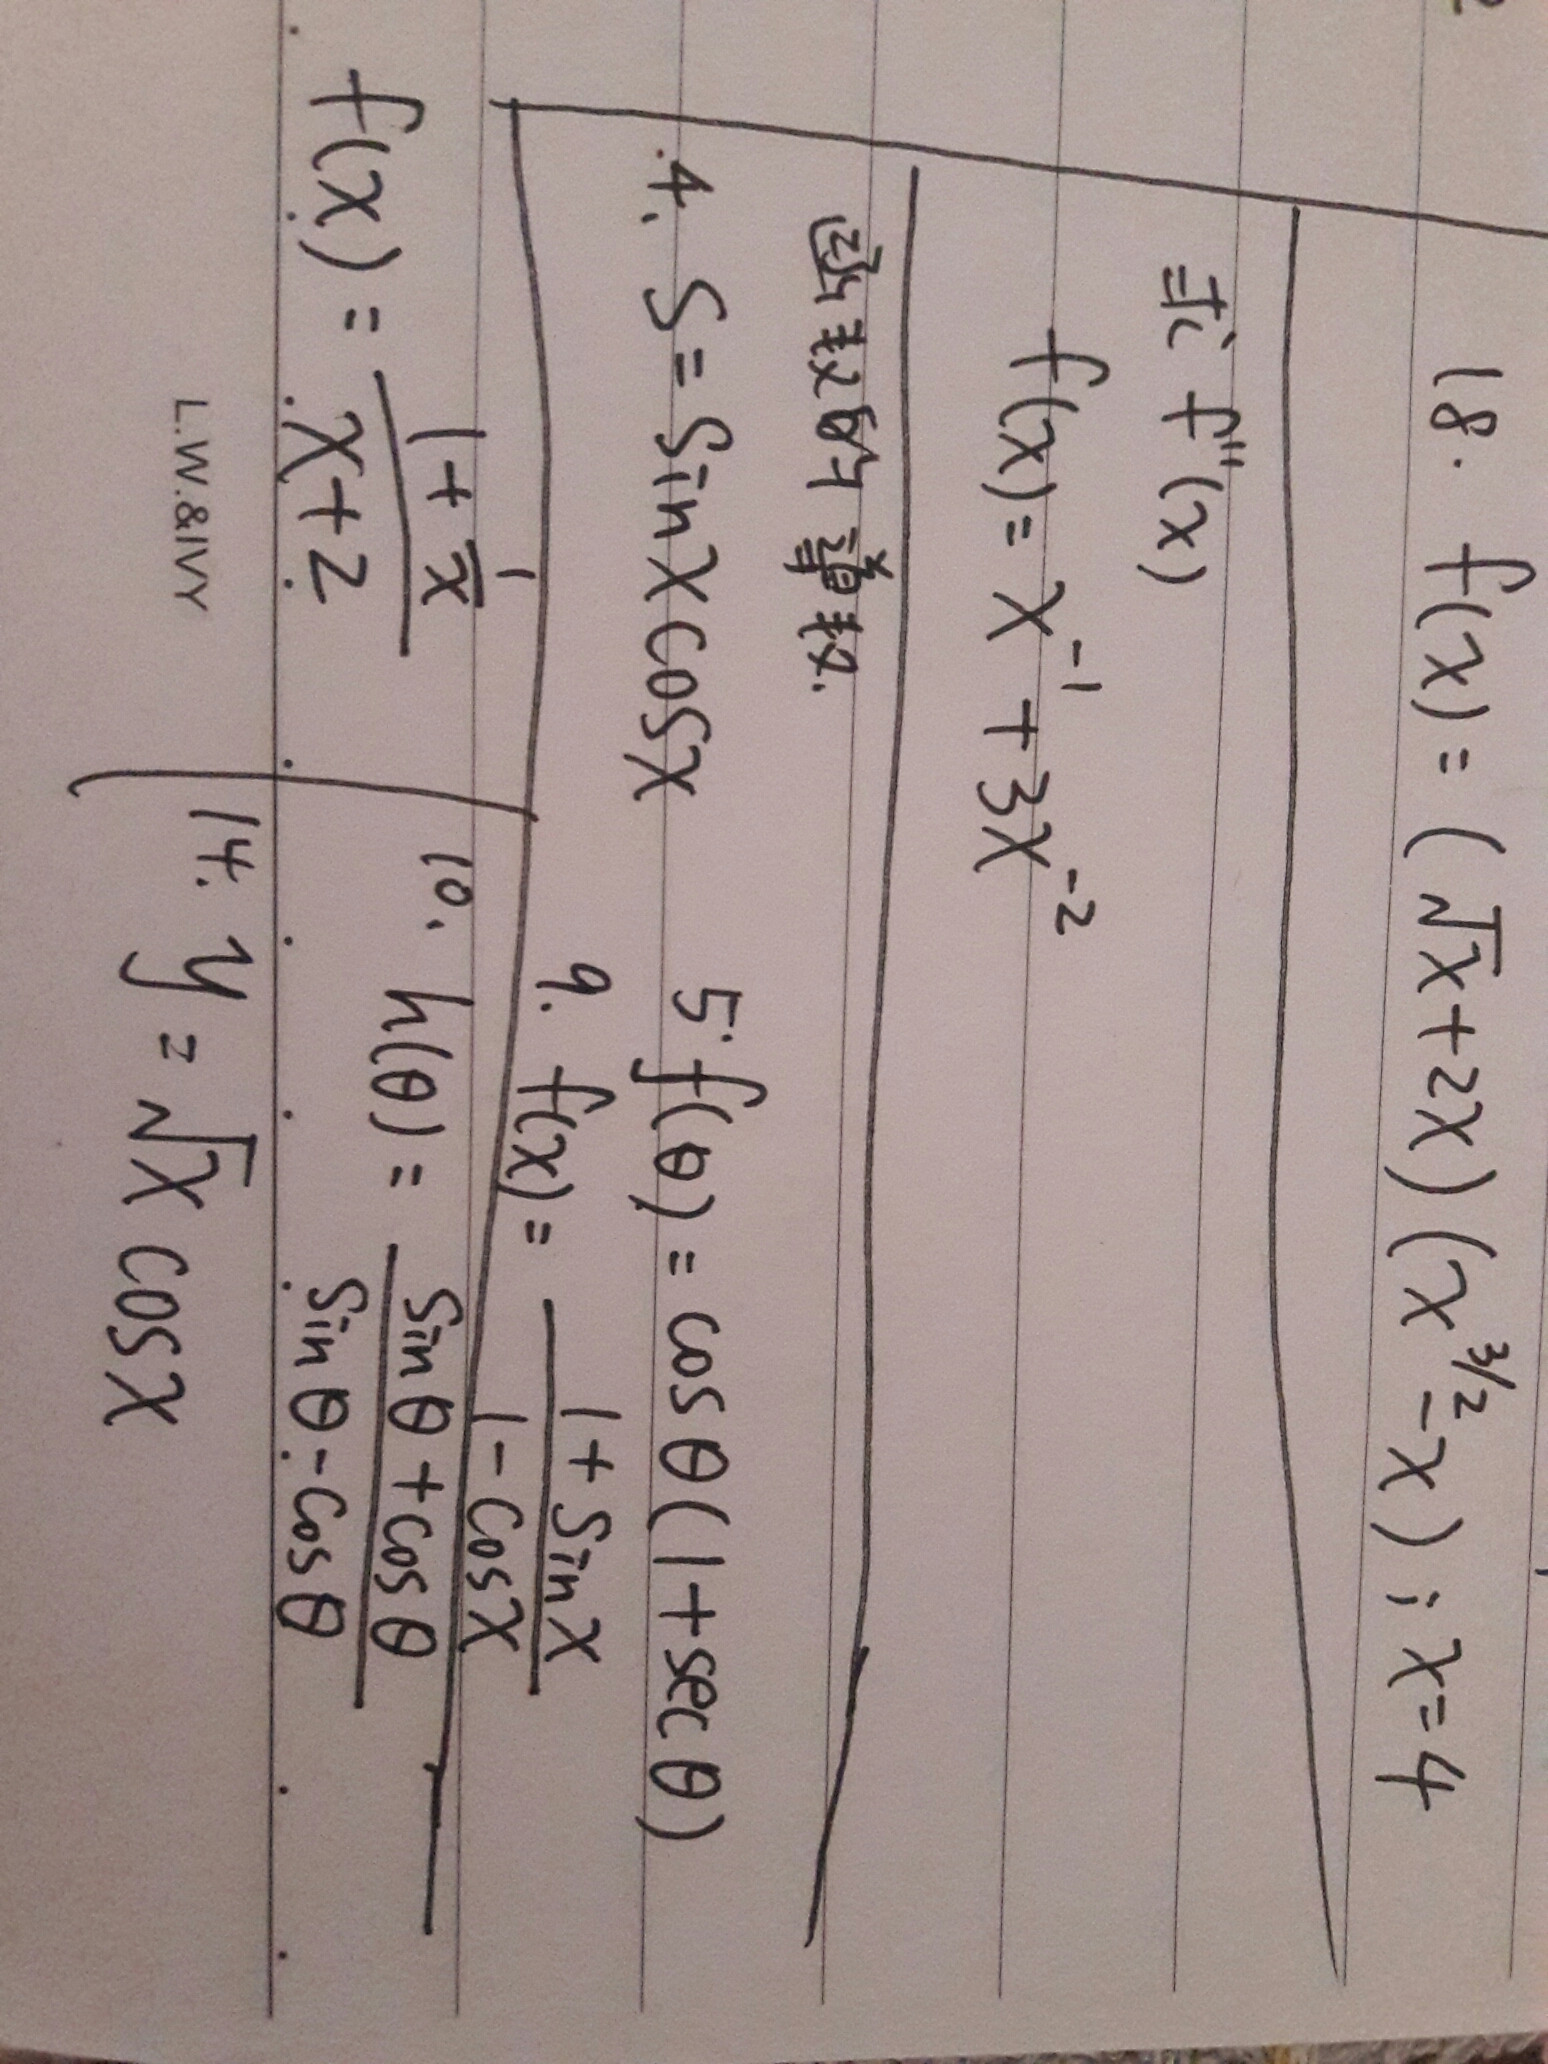 18. f(x) = (√x+2x)(x^3/2 - x) ; x=4
求 f''(x)
f(x) = x^-1 + 3x^-2
函数的 導数.
4. S = Sinxcosx
5. f(θ) = cosθ(1+secθ)
9. f(x) = (1+Sinx)/(1-Cosx)
f(x) = (1+1/x)/(x+2)
10. h(θ) = (Sinθ+cosθ)/(Sinθ-Cosθ)
14. y = √x cosx
L.W.&IVY